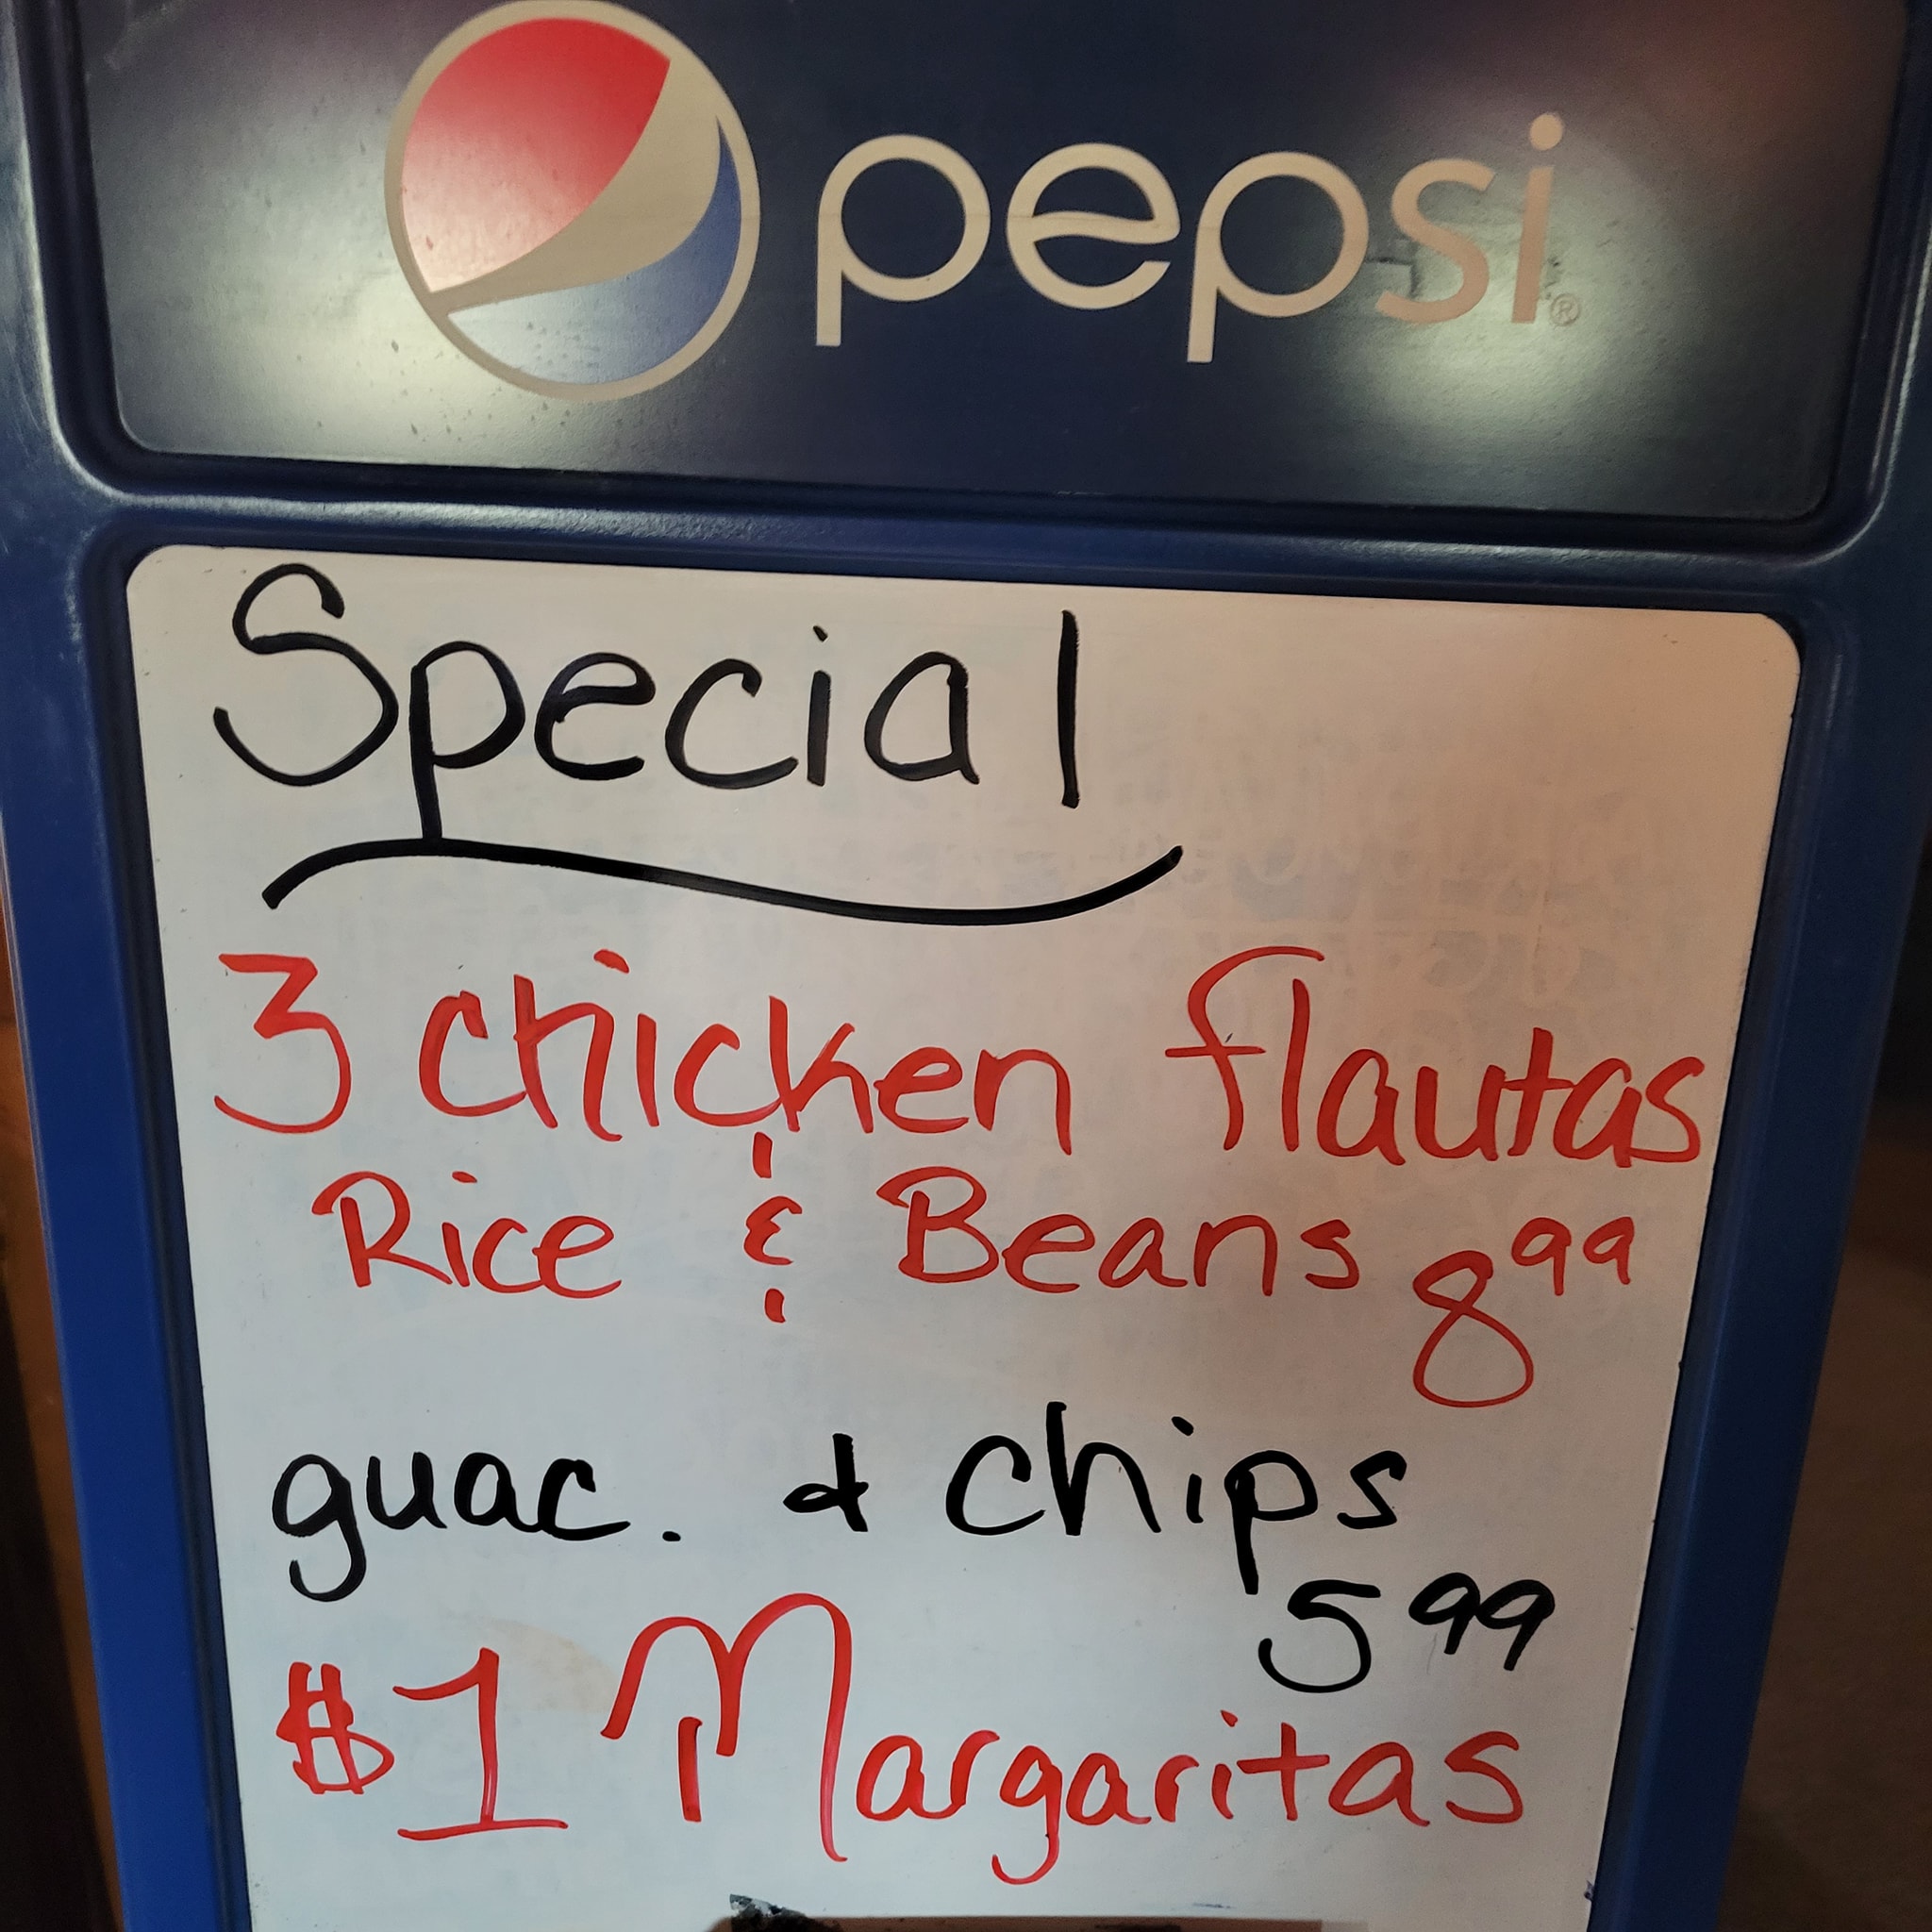 pepsi®
Special
3 chicken flautas
Rice & Beans 8 99
guac. & chips
5 99
$1 Margaritas